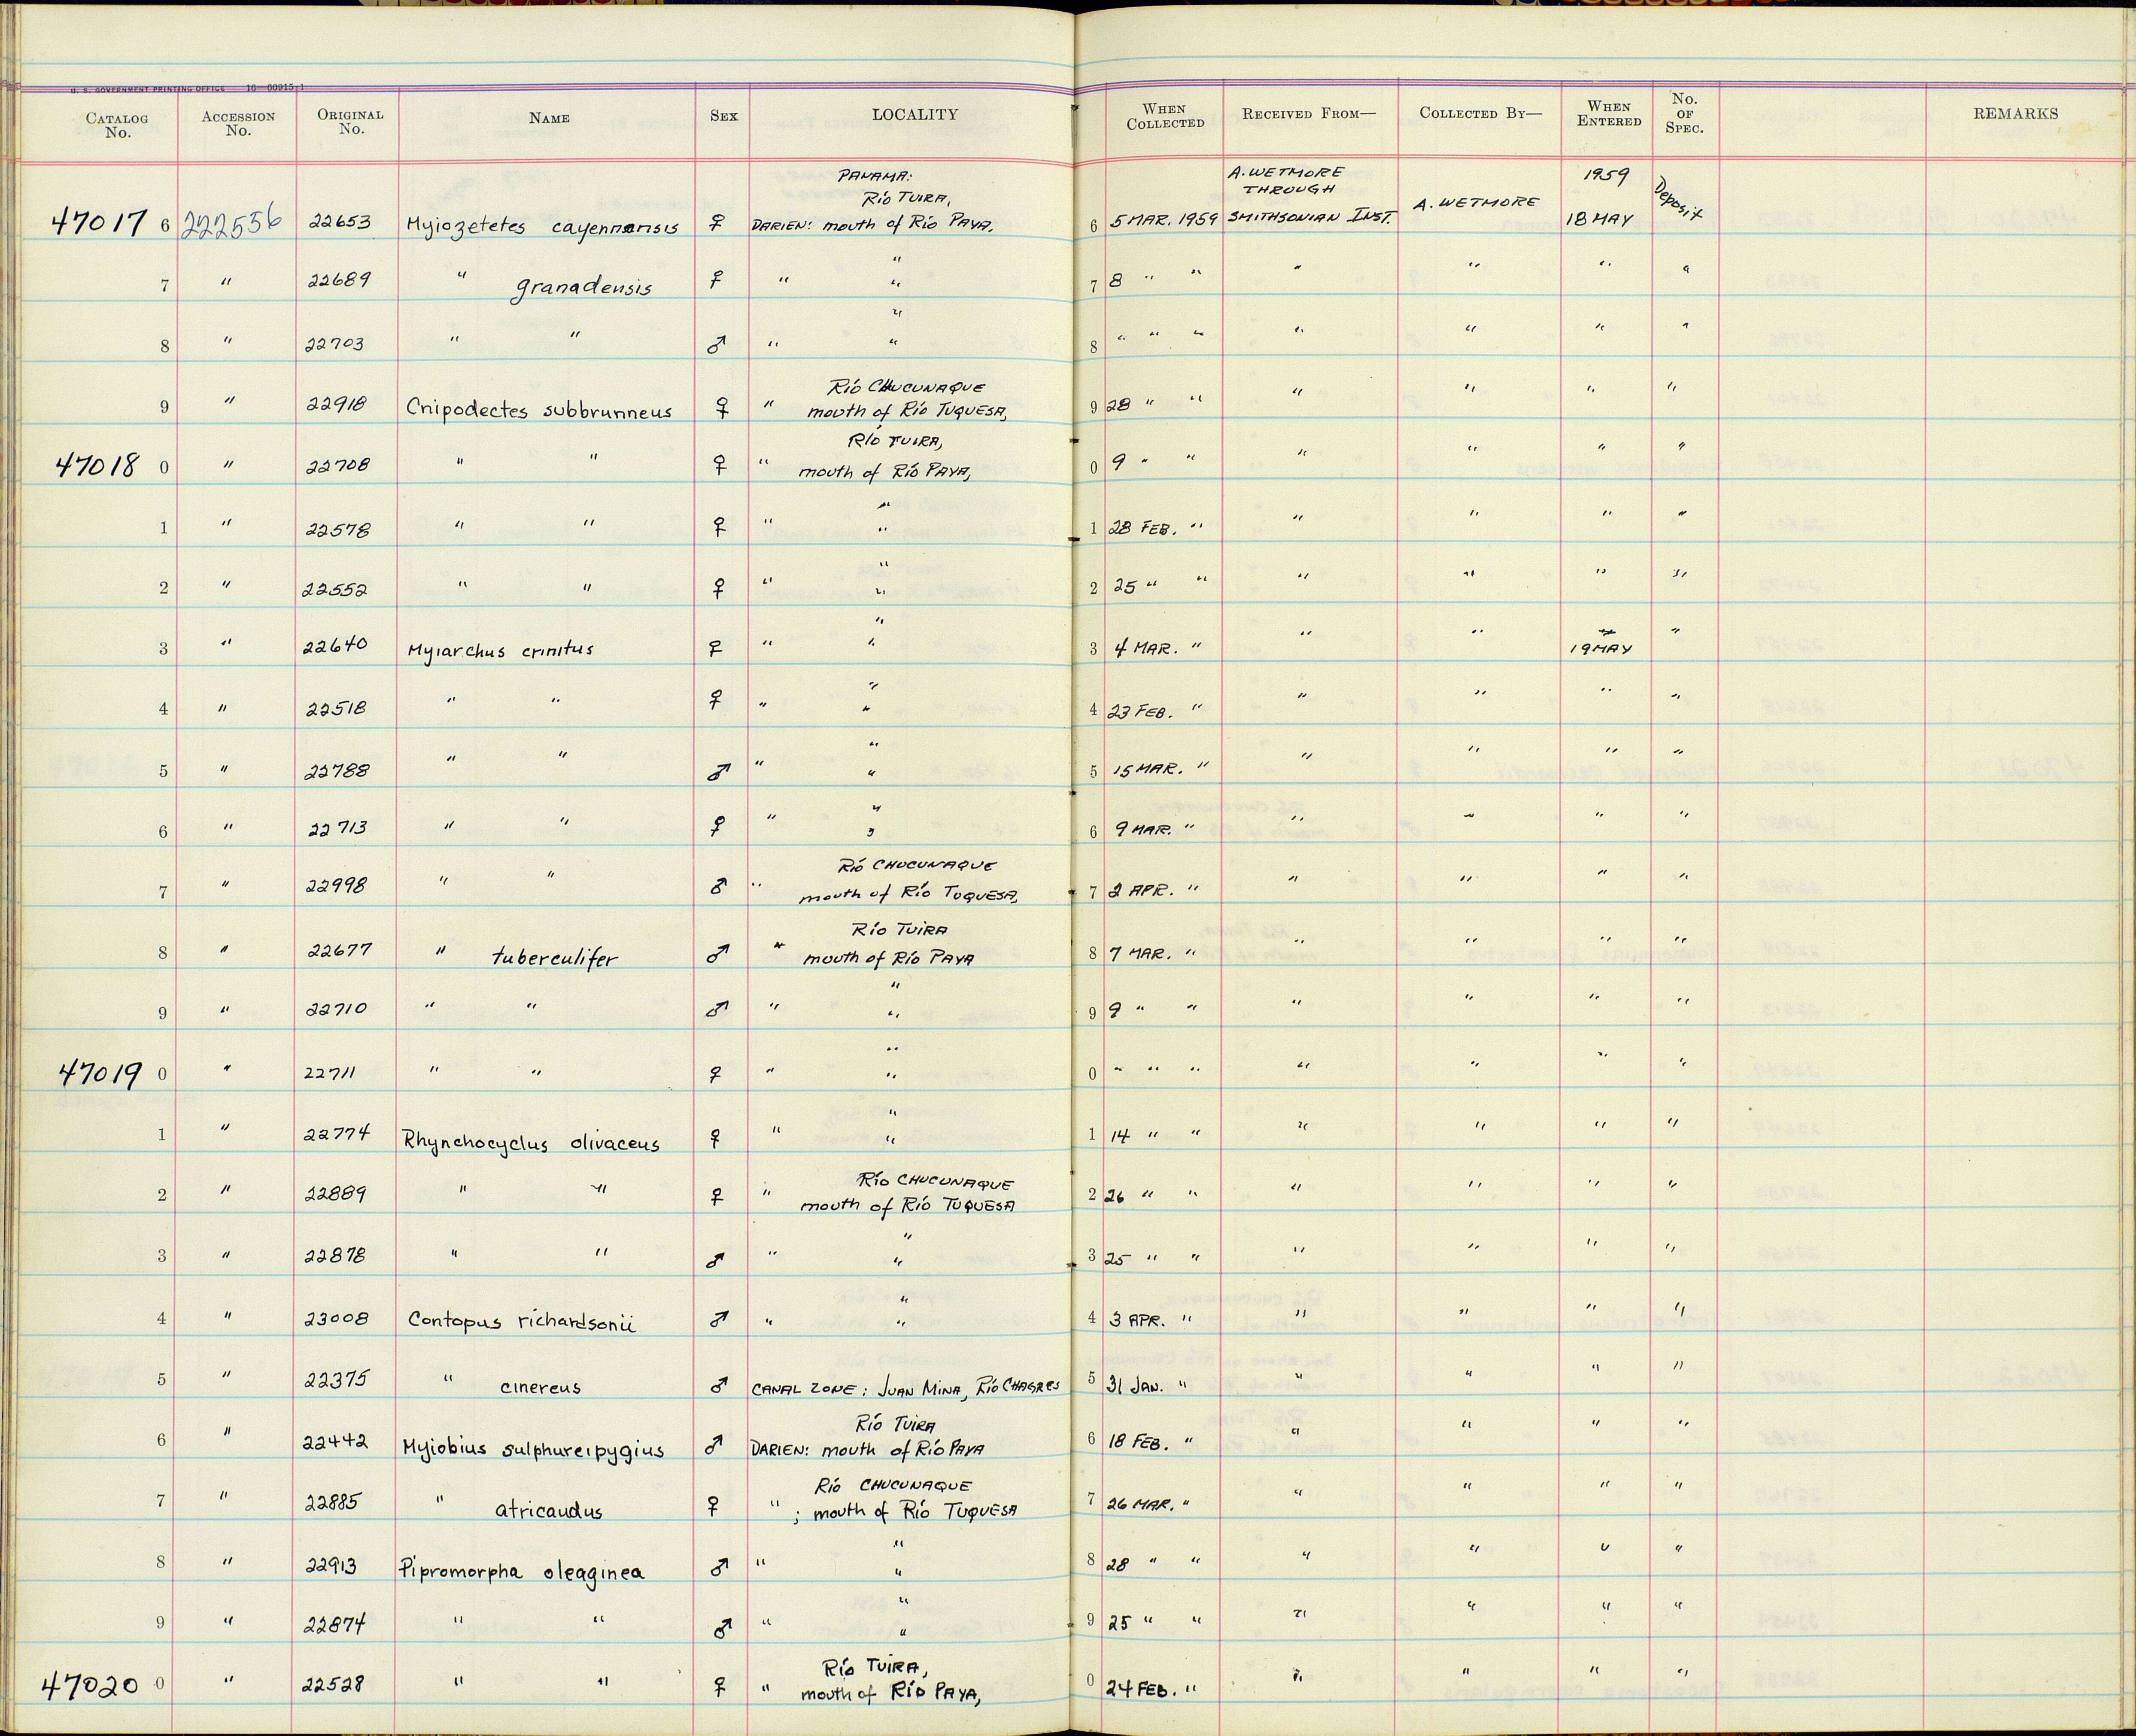 U. S. GOVERNMENT PRINTING OFFICE 16—00915-1
CATALOG No. ACCESSION No. ORIGINAL No. NAME SEX LOCALITY WHEN COLLECTED RECEIVED FROM— COLLECTED BY— WHEN ENTERED No. OF SPEC. REMARKS
PANAMA: A. WETMORE 1959
Río TUIRA, THROUGH
47017 6 222556 22653 Myiozetetes cayennensis ♀ DARIEN: mouth of Río PAYA. 6 5 MAR. 1959 SMITHSONIAN INST. A. WETMORE 18 MAY Deposit
"
7 " 22689 " granadensis ♀ " " 7 8 " " " " " "
"
8 " 22703 " " ♂ " " 8 " " " " " " "
Río CHUCUNAQUE
9 " 22918 Cnipodectes subbrunneus ♀ " mouth of Río TUQUESA, 9 28 " " " " " "
Río TUIRA,
47018 0 " 22708 " " ♀ " mouth of Río PAYA, 0 9 " " " " " "
"
1 " 22578 " " ♀ " " 1 28 FEB. " " " " "
"
2 " 22552 " " ♀ " " 2 25 " " " " " "
"
3 " 22640 Myiarchus crinitus ♀ " " 3 4 MAR. " " " 19 MAY "
"
4 " 22518 " " ♀ " " 4 23 FEB. " " " " "
"
5 " 22788 " " ♂ " " 5 15 MAR. " " " " "
"
6 " 22713 " " ♀ " " 6 9 MAR. " " " " "
Río CHUCUNAQUE
7 " 22998 " " ♂ " mouth of Río TUQUESA, 7 2 APR. " " " " "
Río TUIRA
8 " 22677 " tuberculifer ♂ " mouth of Río PAYA 8 7 MAR. " " " " "
"
9 " 22710 " " ♂ " " 9 9 " " " " " "
"
47019 0 " 22711 " " ♀ " " 0 " " " " " " "
"
1 " 22774 Rhynchocyclus olivaceus ♀ " " 1 14 " " " " " "
Río CHUCUNAQUE
2 " 22889 " " ♀ " mouth of Río TUQUESA 2 26 " " " " " "
"
3 " 22878 " " ♂ " " 3 25 " " " " " "
"
4 " 23008 Contopus richardsonii ♂ " " 4 3 APR. " " " " "
5 " 22375 " cinereus ♂ CANAL ZONE: JUAN MINA, Río CHAGRES 5 31 JAN. " " " " "
Río TUIRA
6 " 22442 Myiobius sulphureipygius ♂ DARIEN: mouth of Río PAYA 6 18 FEB. " " " " "
Río CHUCUNAQUE
7 " 22885 " atricaudus ♀ " ; mouth of Río TUQUESA 7 26 MAR. " " " " "
"
8 " 22913 Pipromorpha oleaginea ♂ " " 8 28 " " " " " "
"
9 " 22874 " " ♂ " " 9 25 " " " " " "
Río TUIRA,
47020 0 " 22528 " " ♀ " mouth of RÍO PAYA, 0 24 FEB. " " " " "